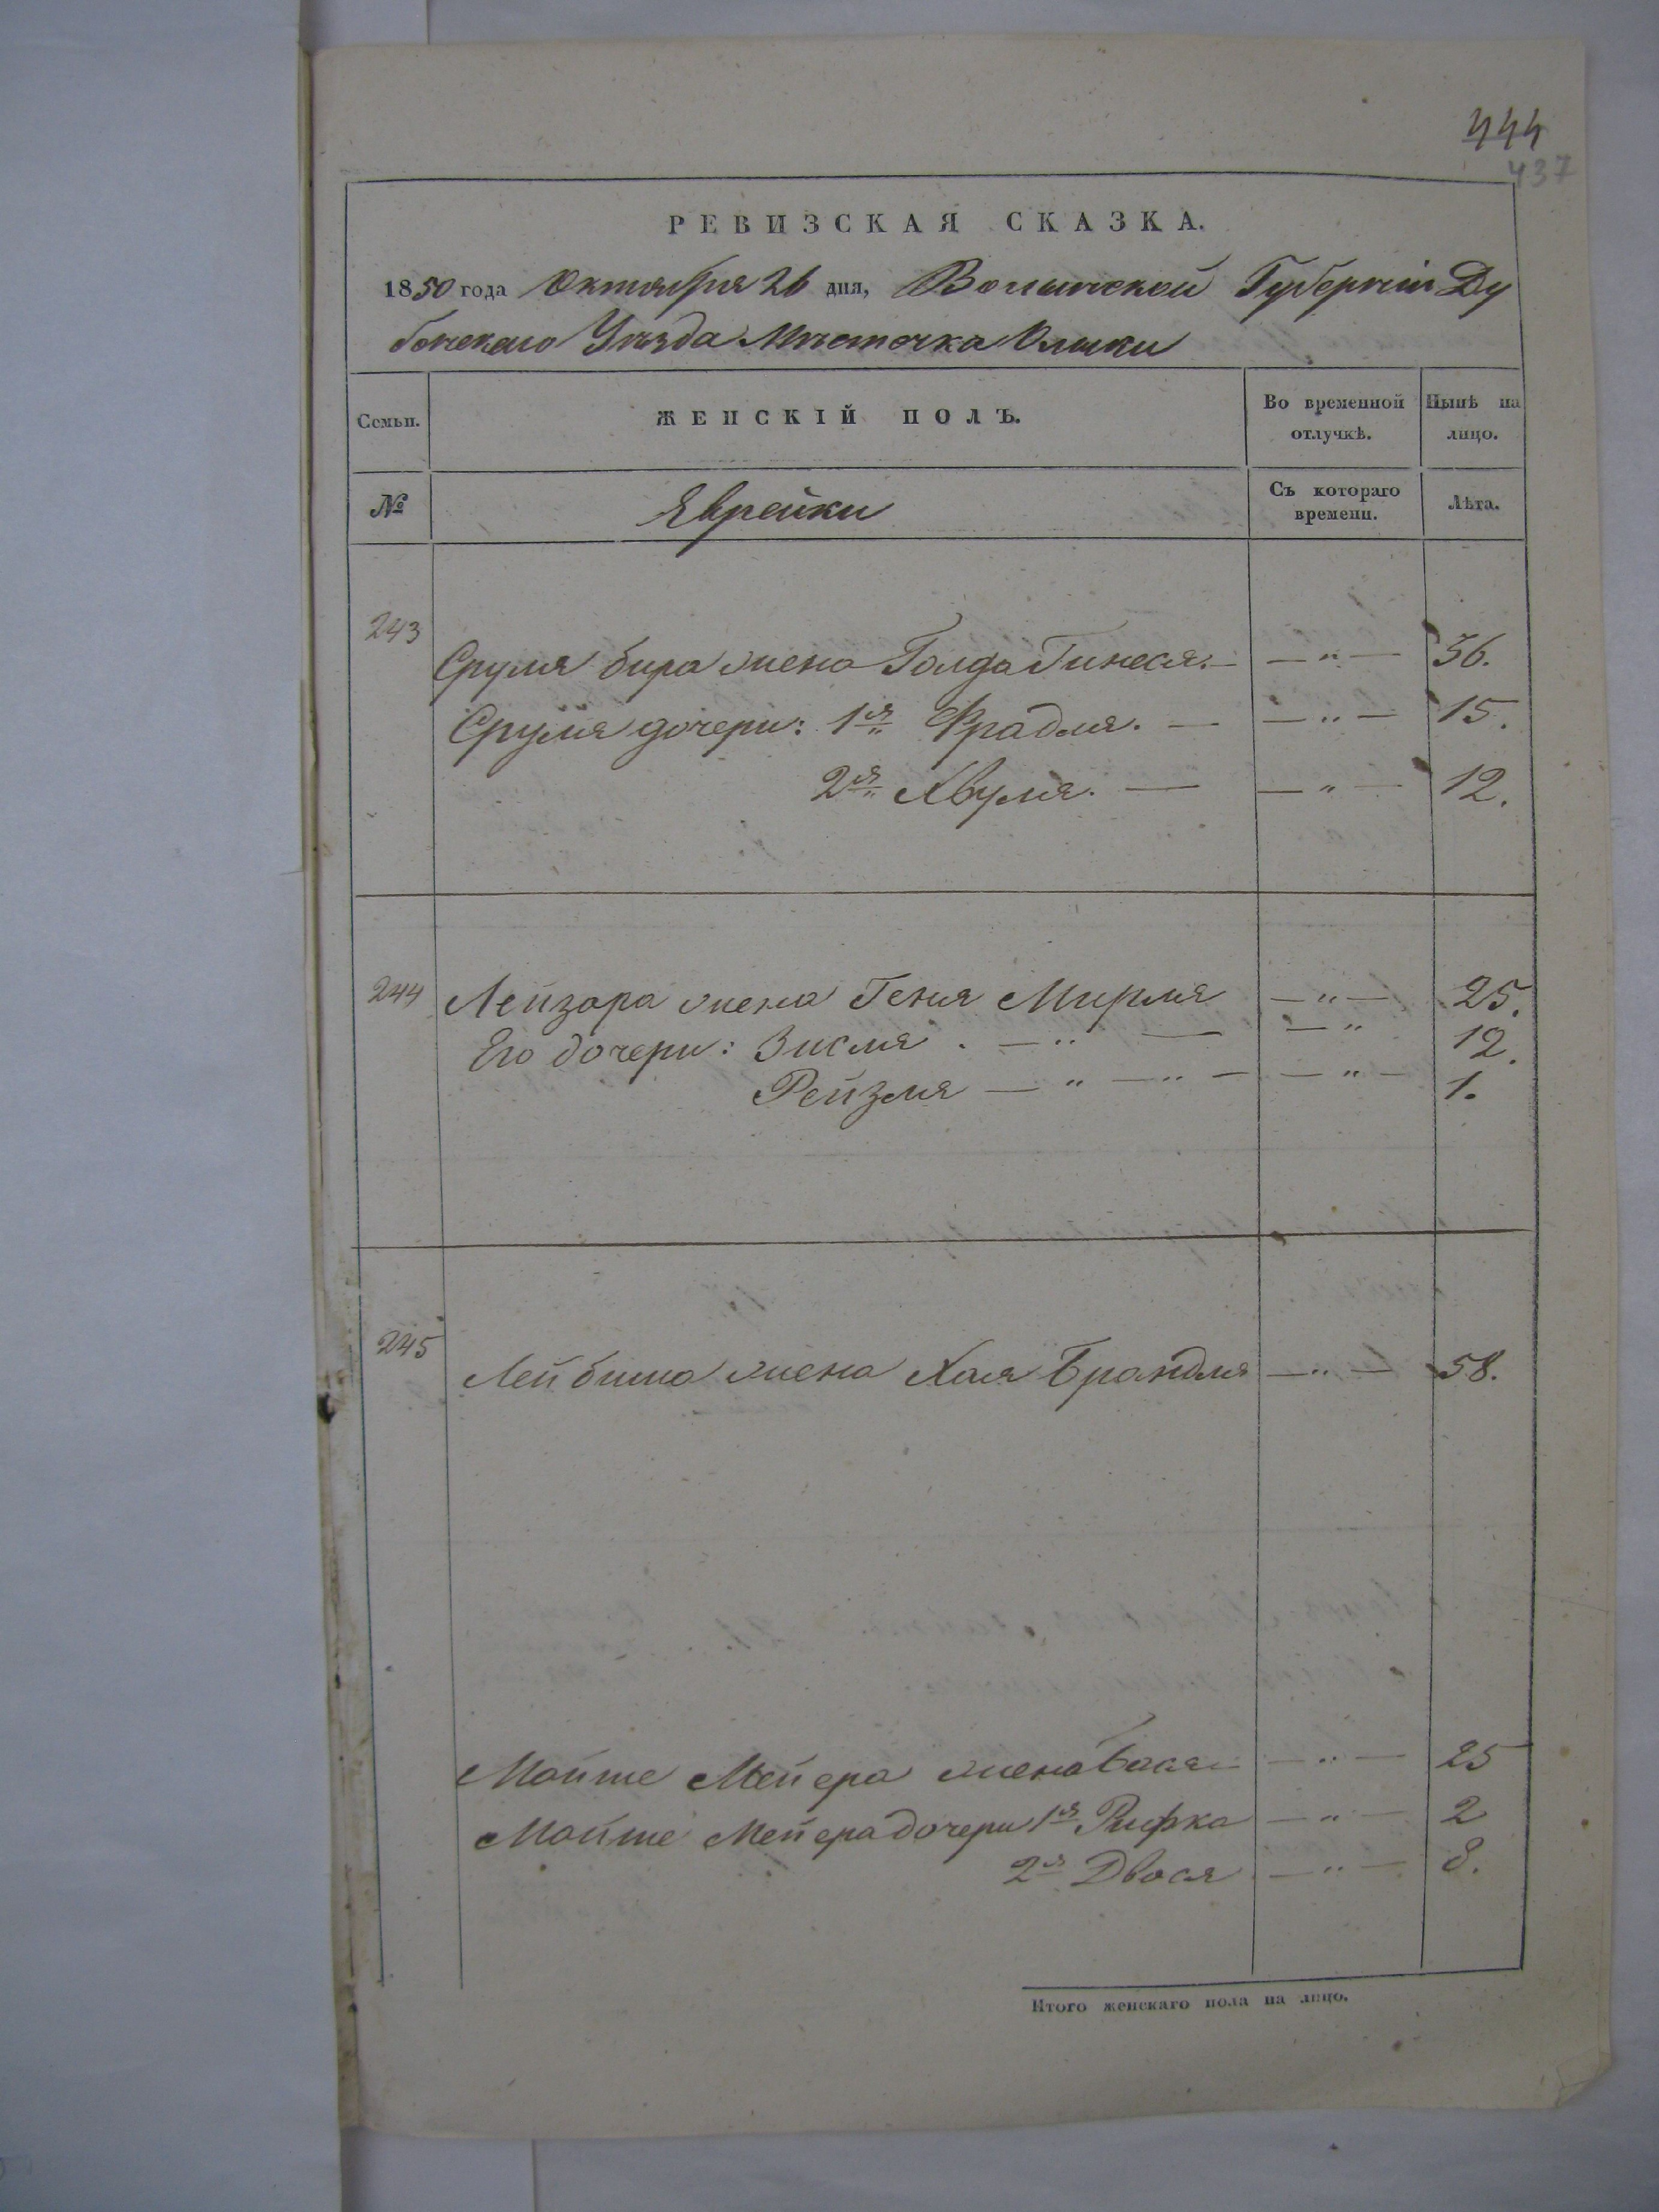 444
437
РЕВИЗСКАЯ СКАЗКА.
1850 года Октября 26 дня, Волынской Губерніи Ду
бенскаго Уѣзда Мѣстечка Олыки
Семьи.
ЖЕНСКІЙ ПОЛЪ.
Во временной отлучкѣ.
Нынѣ на лицо.
№
Еврейки
Съ котораго времени.
Лѣта.
243
Сруля бира жена Голда Гинеся. — — „ — 36.
Сруля дочери: 1я Фрадля. — — „ — 15.
2я Хвуля. — — „ — 12.
244 Лейзора жена Геня Мирля — „ — 25.
Его дочери: Зисля . — „ — — „ 12.
Рейзля — „ — „ — — „ — 1.
245
Лейбиша жена Хая Брандля — „ — 58.
Мойше Мейера жена Бася — „ — 25
Мойше Мейера дочери 1я Рифка — „ — 2
2я Двося — „ — 8.
Итого женскаго пола на лицо.